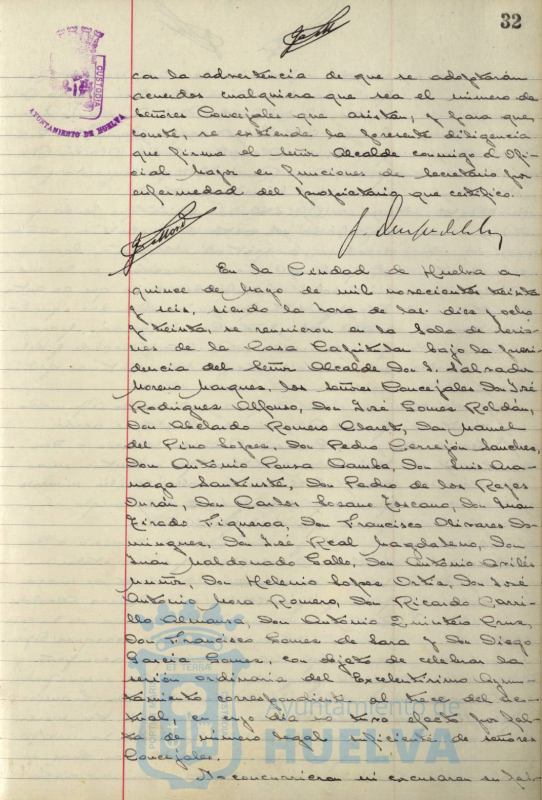 32
con la advertencia de que se adoptarán
acuerdos cualquiera que sea el número de
Señores Concejales que asistan, y para que
conste, se extiende la presente diligencia
que firma el Señor Alcalde conmigo el Ofi-
cial Mayor en funciones de Secretario por
enfermedad del propietario que certifico.
En la Ciudad de Huelva a
quince de Mayo de mil novecientos treinta
y seis, siendo la hora de las diez y ocho
y treinta, se reunieron en la Sala de Sesio-
nes de la Casa Capitular bajo la Presi-
dencia del Señor Alcalde Don Salvador
Moreno Marquez, los señores Concejales Don José
Rodriguez Alfonso, Don José Gomez Roldán,
Don Abelardo Romero Claret, Don Manuel
del Pino Lopez, Don Pedro Cerrejón Sanchez,
Don Antonio Pousa Camba, Don Luis Ara-
naga Don Pedro de los Reyes
Durán, Don Carlos Lozano Toscano, Don Juan
Tirado Figueroa, Don Francisco Olivares Do-
minguez, Don José Real Magdaleno, Don
Juan Maldonado Gallo, Don Antonio Avilés
Muñoz, Don Helenio Lopez Orta, Don José
Antonio Mora Romero, Don Ricardo Carri-
llo Almansa, Don Antonio Quinteio Cruz,
Don Francisco Gomez de Lara y Don Diego
García Gomez, con objeto de celebrar la
sesión ordinaria del Excelentísimo Ayun-
tamiento correspondiente al trece del ac-
tual, en cuyo día no tuvo efecto por fal-
ta de número legal suficiente de señores
Concejales.
No concurrieron ni excusaron su fal-
CUSTODIA
AYUNTAMIENTO DE HUELVA
Ayuntamiento de
HUELVA